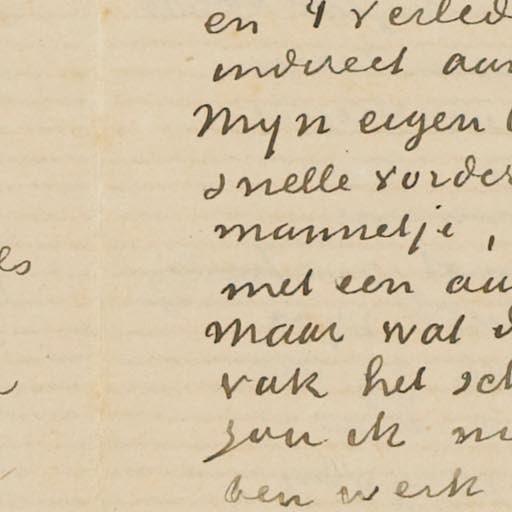 es
en 't verled
indirect aan
Mijn eigen
snelle vorder
mannetje,
met een au
maar wat d
vak het sch
zou ik m
ben werk